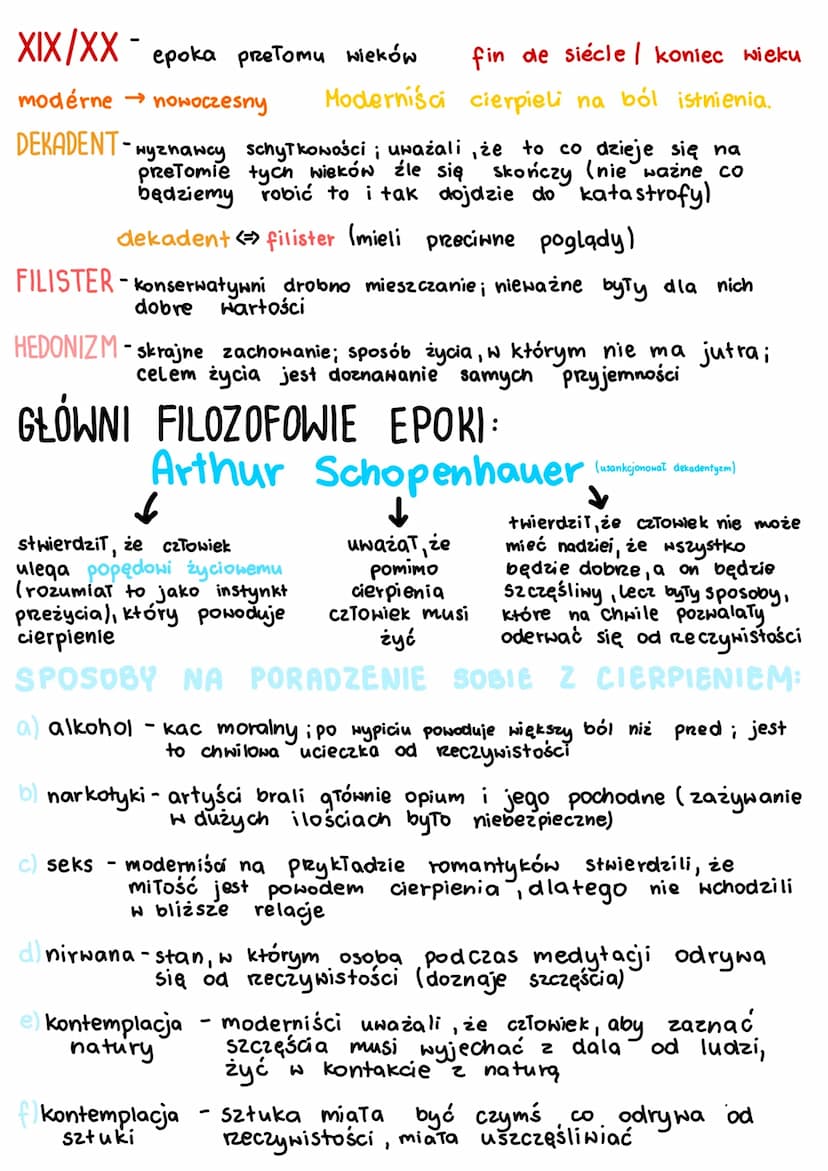 XIX/XX - epoka przełomu wieków fin de siécle / koniec wieku
modérne → nowoczesny Moderniści cierpieli na ból istnienia.
DEKADENT - wyznawcy schyłkowości; uważali, że to co dzieje się na
przełomie tych wieków źle się skończy (nie ważne co
będziemy robić to i tak dojdzie do katastrofy)
dekadent ⇔ filister (mieli przeciwne poglądy)
FILISTER - konserwatywni drobno mieszczanie; nieważne były dla nich
dobre wartości
HEDONIZM - skrajne zachowanie; sposób życia, w którym nie ma jutra;
celem życia jest doznawanie samych przyjemności
GŁÓWNI FILOZOFOWIE EPOKI:
Arthur Schopenhauer (usankcjonował dekadentyzm)
stwierdził, że człowiek
ulega popędowi życiowemu
(rozumiał to jako instynkt
przeżycia), który powoduje
cierpienie
uważał, że
pomimo
cierpienia
człowiek musi
żyć
twierdził, że człowiek nie może
mieć nadziei, że wszystko
będzie dobrze, a on będzie
szczęśliwy, lecz były sposoby,
które na chwile pozwalały
oderwać się od rzeczywistości
SPOSOBY NA PORADZENIE SOBIE Z CIERPIENIEM:
a) alkohol - kac moralny; po wypiciu powoduje większy ból niż przed; jest
to chwilowa ucieczka od rzeczywistości
b) narkotyki - artyści brali głównie opium i jego pochodne (zażywanie
w dużych ilościach było niebezpieczne)
c) seks - moderniści na przykładzie romantyków stwierdzili, że
miłość jest powodem cierpienia, dlatego nie wchodzili
w bliższe relacje
d) nirwana - stan, w którym osoba podczas medytacji odrywa
się od rzeczywistości (doznaje szczęścia)
e) kontemplacja - moderniści uważali, że człowiek, aby zaznać
natury szczęścia musi wyjechać z dala od ludzi,
żyć w kontakcie z naturą
f) kontemplacja - sztuka miała być czymś co odrywa od
sztuki rzeczywistości, miała uszczęśliwiać